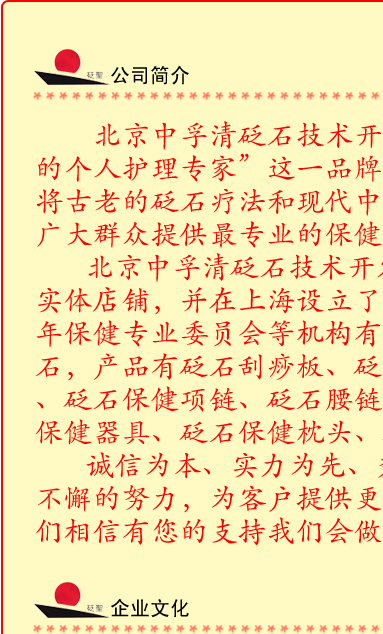 砭聖 公司简介
北京中孚清砭石技术开
的个人护理专家”这一品牌
将古老的砭石疗法和现代中
广大群众提供最专业的保健
北京中孚清砭石技术开发
实体店铺，并在上海设立了
年保健专业委员会等机构有
石，产品有砭石刮痧板、砭
、砭石保健项链、砭石腰链
保健器具、砭石保健枕头、
诚信为本、实力为先、
不懈的努力，为客户提供更
们相信有您的支持我们会做
砭聖 企业文化